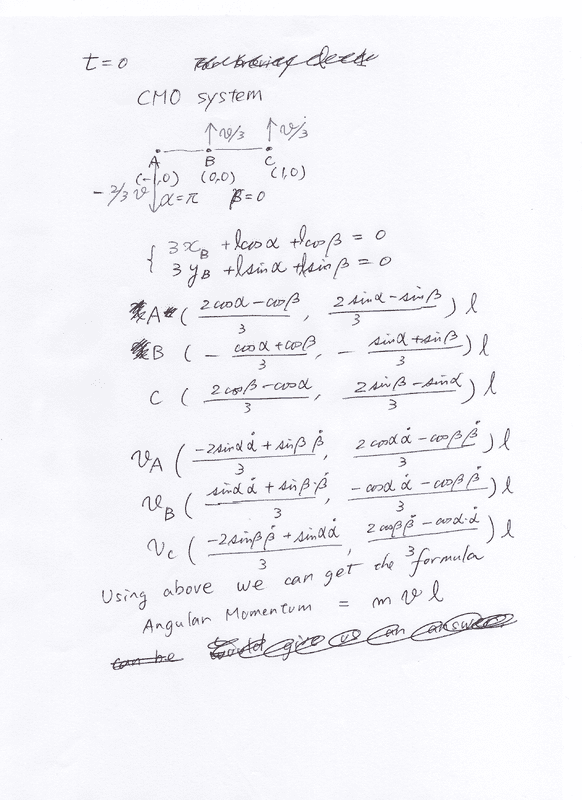 t = 0
CMO system
↑ v/3 ↑ v/3
A B C
(-1,0) (0,0) (1,0)
- 2/3 v α = π β = 0
{ 3x_B + l cos α + l cos β = 0
3y_B + l sin α + l sin β = 0
A ( (2cosα - cosβ)/3 , (2sinα - sinβ)/3 ) l
B ( - (cosα + cosβ)/3 , - (sinα + sinβ)/3 ) l
C ( (2cosβ - cosα)/3 , (2sinβ - sinα)/3 ) l
v_A ( (-2sinα α̇ + sinβ β̇)/3 , (2cosα α̇ - cosβ β̇)/3 ) l
v_B ( (sinα α̇ + sinβ·β̇)/3 , (-cosα α̇ - cosβ β̇)/3 ) l
v_C ( (-2sinβ β̇ + sinα α̇)/3 , (2cosβ β̇ - cosα·α̇)/3 ) l
Using above we can get the formula
Angular Momentum = m v l